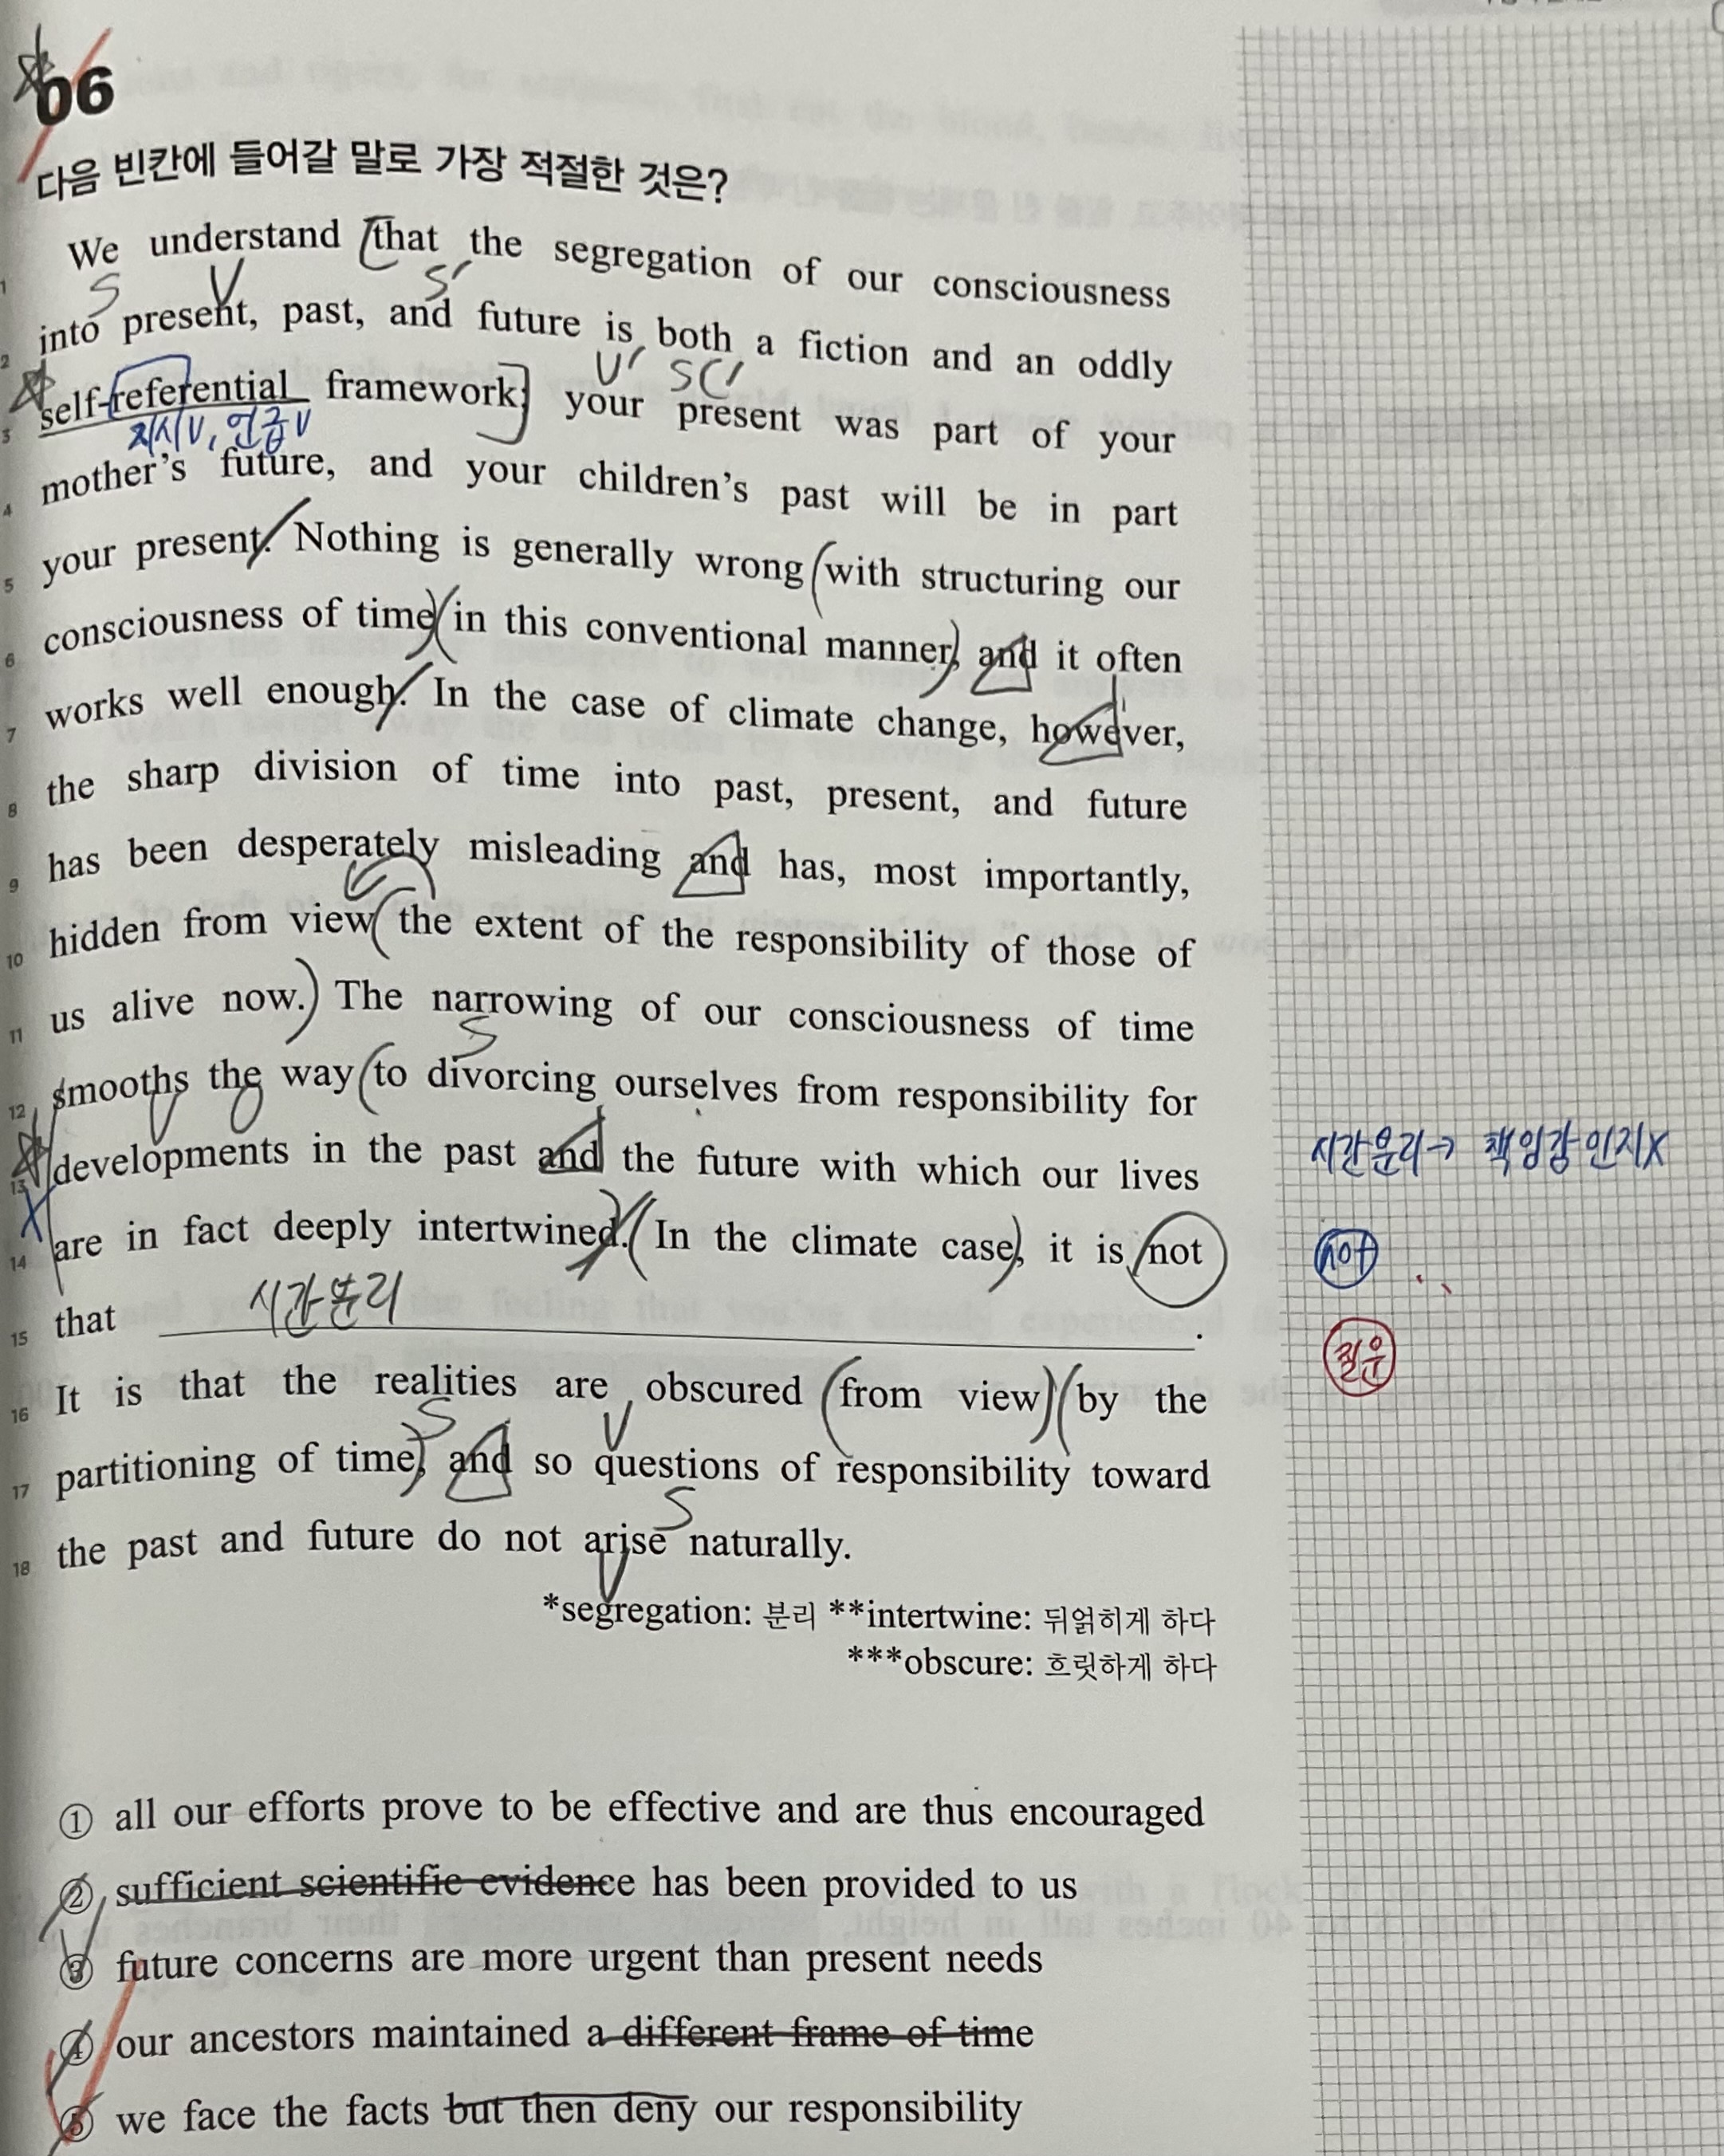 06
다음 빈칸에 들어갈 말로 가장 적절한 것은?
1 We understand that the segregation of our consciousness
S V S'
2 into present, past, and future is both a fiction and an oddly
V' SC'
3 self-referential framework; your present was part of your
지시V, 언급V
4 mother's future, and your children's past will be in part
5 your present. Nothing is generally wrong with structuring our
6 consciousness of time in this conventional manner, and it often
7 works well enough. In the case of climate change, however,
8 the sharp division of time into past, present, and future
9 has been desperately misleading and has, most importantly,
10 hidden from view the extent of the responsibility of those of
11 us alive now. The narrowing of our consciousness of time
S
12 smooths the way to divorcing ourselves from responsibility for
V O
13 developments in the past and the future with which our lives
시간분리→ 책임감 인지X
14 are in fact deeply intertwined. In the climate case, it is not
not
시간분리
15 that ____________.
16 It is that the realities are obscured from view by the
S V
17 partitioning of time, and so questions of responsibility toward
S
18 the past and future do not arise naturally.
V
*segregation: 분리 **intertwine: 뒤얽히게 하다
***obscure: 흐릿하게 하다
① all our efforts prove to be effective and are thus encouraged
② sufficient scientific evidence has been provided to us
③ future concerns are more urgent than present needs
④ our ancestors maintained a different frame of time
⑤ we face the facts but then deny our responsibility